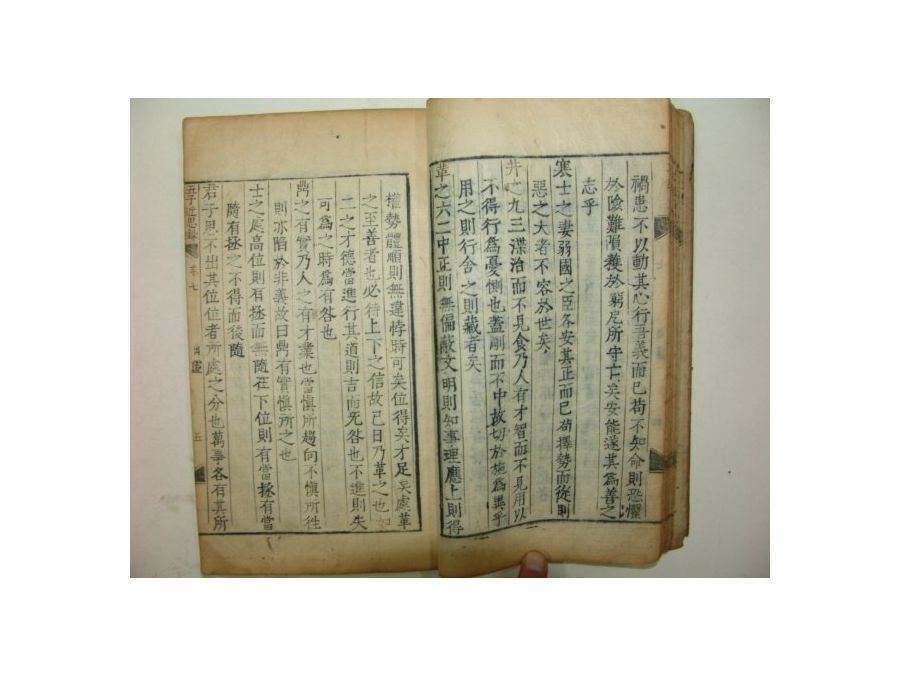 禍患不以動其心行吾義而已苟不知命則恐懼
於險難隕穫於窮厄所守亡矣安能遂其為善之
志乎
寒士之妻弱國之臣各安其正而已苟擇勢而從則
惡之大者不容於世矣
井之九三渫治而不見食乃人有才智而不見用以
不得行為憂惻也蓋剛而不中故切於施為異乎
用之則行舍之則藏者矣
革之六二中正則無偏蔽文明則知事理應上則得
權勢體順則無違悖時可矣位得矣才足矣處革
之至善者也必待上下之信故已日乃革之也如
二之才德當進行其道則吉而无咎也不進則失
可為之時為有咎也
鼎之有實乃人之有才業也當慎所趨向不慎所往
則亦陷於非義故曰鼎有實慎所之也
士之處高位則有拯而無隨在下位則有當拯有當
隨有拯之不得而後隨
君子思不出其位位者所處之分也萬事各有其所
五子近思錄 卷七 五